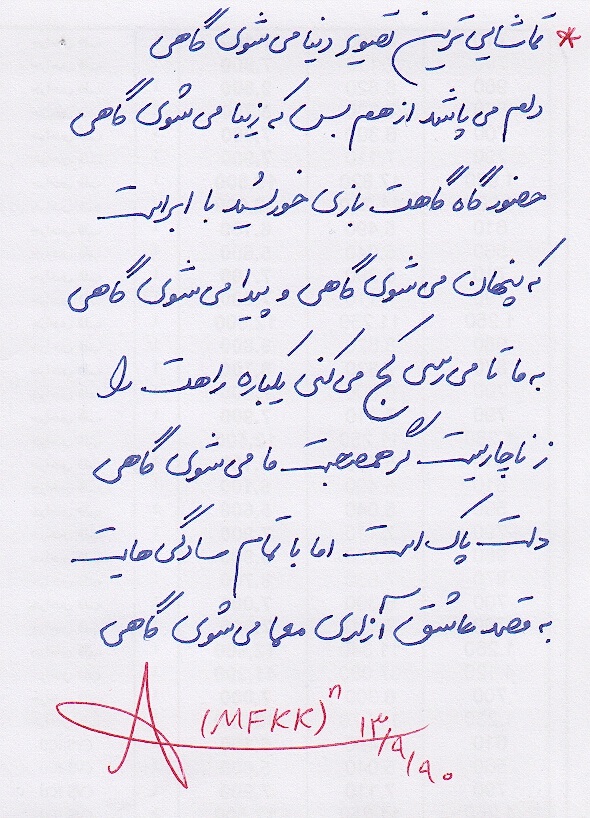 * تماشایی ترین تصویر دنیا می شوی گاهی
دلم می پاشد از هم بس که زیبا می شوی گاهی
حضور گاه گاهت بازی خورشید با ابر است
که پنهان می شوی گاهی و پیدا می شوی گاهی
به ما تا می رسی کج می کنی یکباره راهت را
ز ناچاریست گر همصحبت ما می شوی گاهی
دلت پاک است اما با تمام سادگی هایت
به قصد عاشق آزاری معما می شوی گاهی
(MFKK)ⁿ ۱۳/۹/۹۰